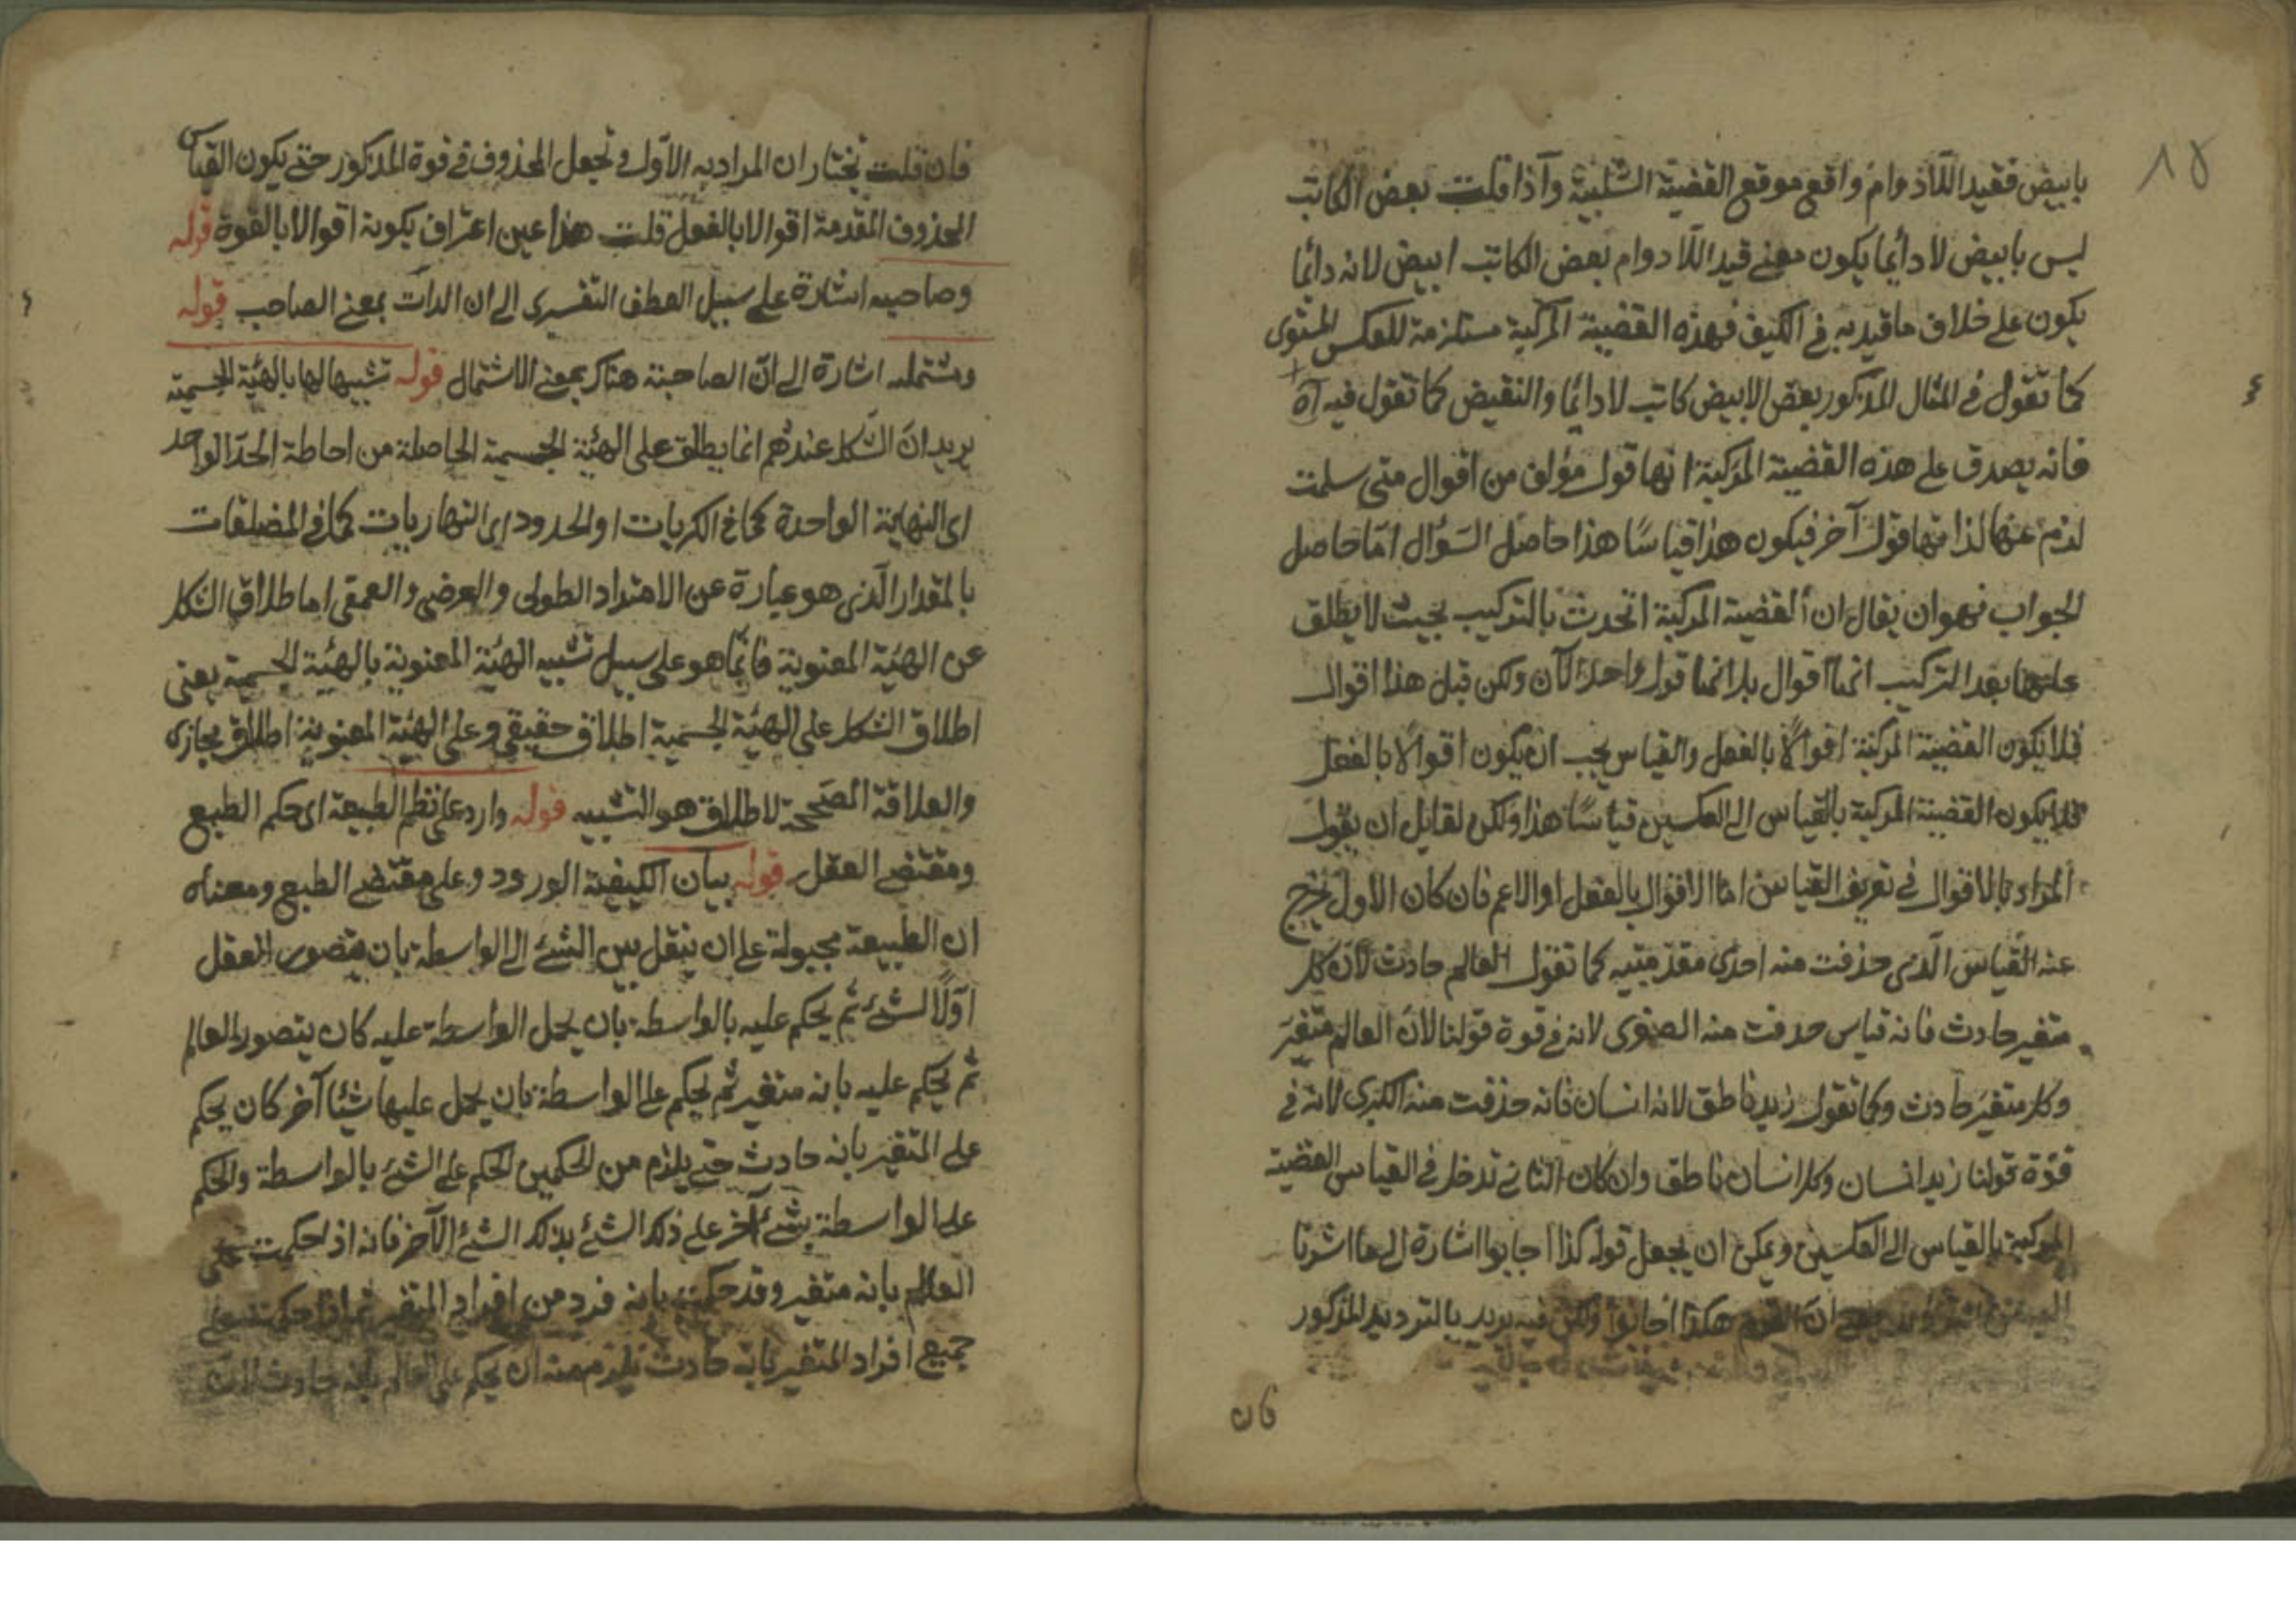 ١٥
بابيض فقيد اللادوام واقع موقع القضية السلبية وآذا قلت بعض الكاتب
ليس بابيض لا دائما يكون معنى قيد اللادوام بعض الكاتب ابيض لانه دائما
يكون على خلاف ما قيد به في الكيف فهذه القضية المركبة مستلزمة للعكس المستوى
كما تقول في المثال المذكور بعض الابيض كاتب لا دائما والنقيض كما تقول فيه آه
فانه يصدق على هذه القضية المركبة انها قول مؤلف من اقوال متى سلمت
لزم عنها لذاتها قول آخر فيكون هذا قياسًا هذا حاصل السؤال امّا حاصل
الجواب فهو ان يقال ان القضية المركبة اتحدت بالتركيب بحيث لا يطلق
عليها بعد التركيب انها اقوال بل انها قول واحد الآن ولكن قبل هذا اقوال
فلا يكون القضية المركبة اقوالًا بالفعل والقياس يجب ان يكون اقوالا بالفعل
فلا يكون القضية المركبة بالقياس الى العكسين قياسًا هذا ولكن لقايل ان يقول
المراد بالاقوال في تعريف القياس اما الاقوال بالفعل او الاعم فان كان الاول يخرج
عنه القياس الذى حذفت منه احدى مقدمتيه كما تقول العالم حادث لان كل
متغير حادث فانه قياس حذفت منه الصغرى لانه في قوة قولنا لان العالم متغير
وكل متغير حادث وكما تقول زيد ناطق لانه انسان فانه حذفت منه الكبرى لانه في
قوة قولنا زيد انسان وكل انسان ناطق وان كان الثانى تدخل في القياس القضية
المركبة بالقياس الى العكسين ويمكن ان يجعل قوله كذا اجابوا اشارة الى ما اشرنا
ان القوم هكذا اجابوا ولكن فيه يريد بالترديد المذكور
فان
فان قلت نختار ان المراد به الاول ونجعل المحذوف في قوة المذكور حتى يكون القياس
المحذوف المقدمة اقوالا بالفعل قلت هذا عين اعتراف بكونه اقوالا بالقوة قوله
وصاحبه اشارة على سبيل العطف التفسيرى الى ان الذات بمعنى الصاحب قوله
ومشتمله اشارة الى انّ الصاحبية هناك بمعنى الاشتمال قوله تشبيها لها بالهيئة الجسمية
يريد ان الشكل عندهم انما يطلق على الهيئة الجسمية الحاصلة من احاطة الحد الواحد
اى النهاية الواحدة كما في الكريات او الحدود اى النهاريات كما في المضلعات
بالمقدار الّذى هو عبارة عن الامتداد الطولى والعرضى والعمقى اما طلاق الشكل
عن الهيئة المعنوية فانما هو على سبيل تشبيه الهيئة المعنوية بالهيئة الجسمية يعنى
اطلاق الشكل على الهيئة الجسمية اطلاق حقيقى وعلى الهيئة المعنوية اطلاق مجازى
والعلاقة المصححة لاطلاق هو التشبيه قوله وارد على نظم الطبيعة اى حكم الطبع
ومقتضى العقل قوله بيان الكيفية الورود وعلى مقتضى الطبع ومعناه
ان الطبيعة مجبولة على ان ينتقل من الشئ الى الواسطة بان يتصور العقل
اوّلًا الشئ ثم يحكم عليه بالواسطة بان يحمل الواسطة عليه كان يتصور العالم
ثم يحكم عليه بانه متغير ثم يحكم على الواسطة بان يحمل عليها شيئا آخر كان يحكم
على المتغير بانه حادث حتى يلزم من الحكمين الحكم على الشئ بالواسطة والحكم
على الواسطة بشئ آخر على ذلك الشئ بذلك الشئ الآخر فانه اذ احكمت على
العالم بانه متغير وقد حكمت بانه فرد من افراد المتغير ثم اذا حكمت على
جميع افراد المتغير بانه حادث يلزم منه ان يحكم على العالم بانه حادث